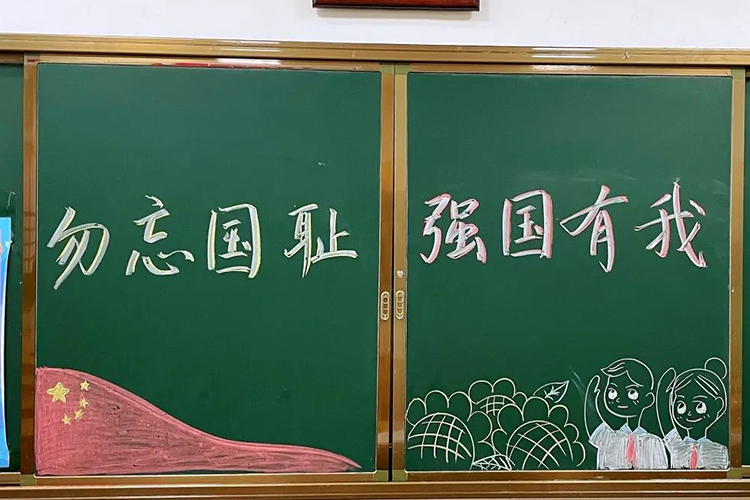 勿忘国耻 强国有我